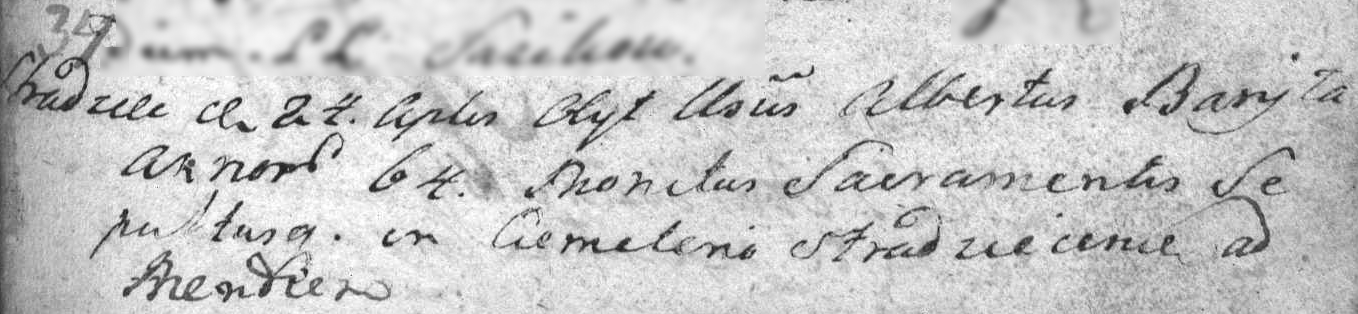 Stradzele d. 24. Aplis Obyt Usus Albertus Baryta
Annord 64. Monitus Sacramentis Se
pultusq. in Ciemeterio Stradzieciense ad
Meridiem